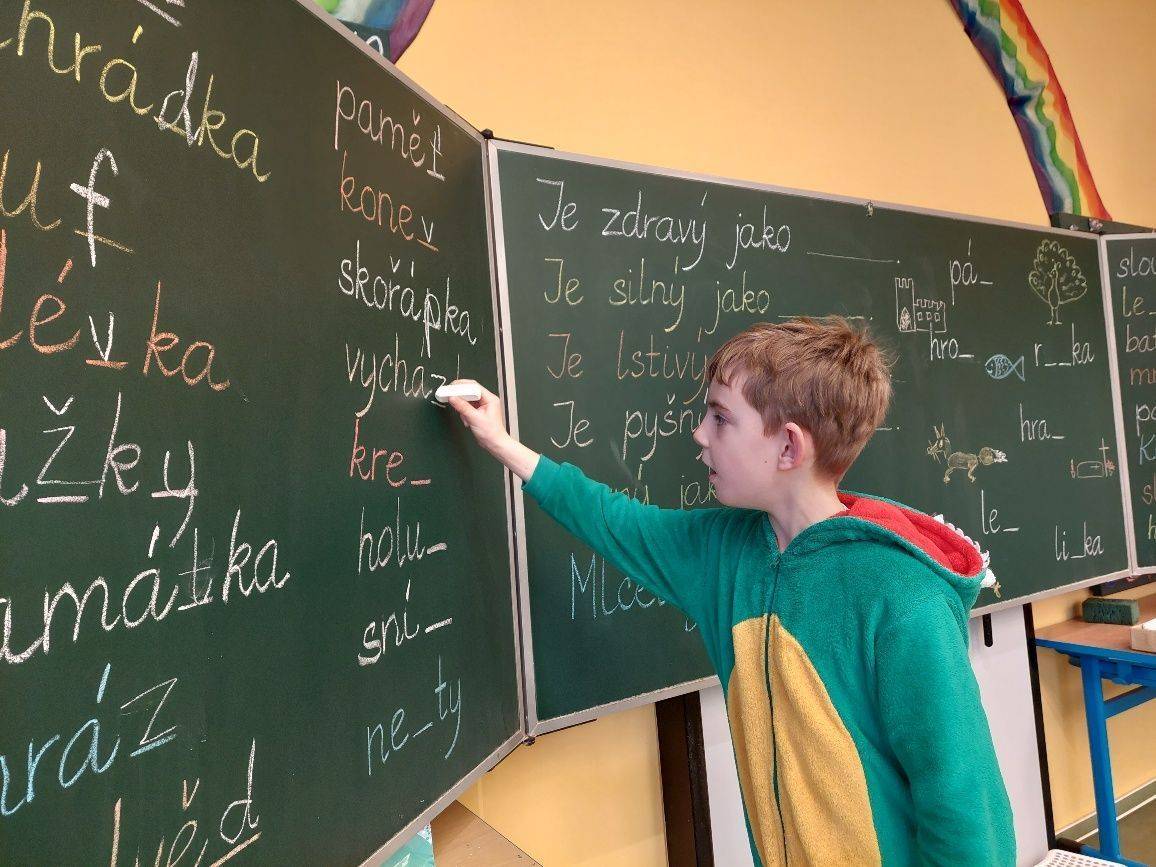 hrádka
uf
lévka
žky
amátka
ráz
věd
paměť
konev
skořápka
vycház
kre_
holu_
sní_
ne_ty
Je zdravý jako ______.
Je silný jako ______.
Je lstivý
Je pyšn
ný jak
Mlče
pá_
hro_
r__ka
hra_
le_
li_ka
slou
le_
bat